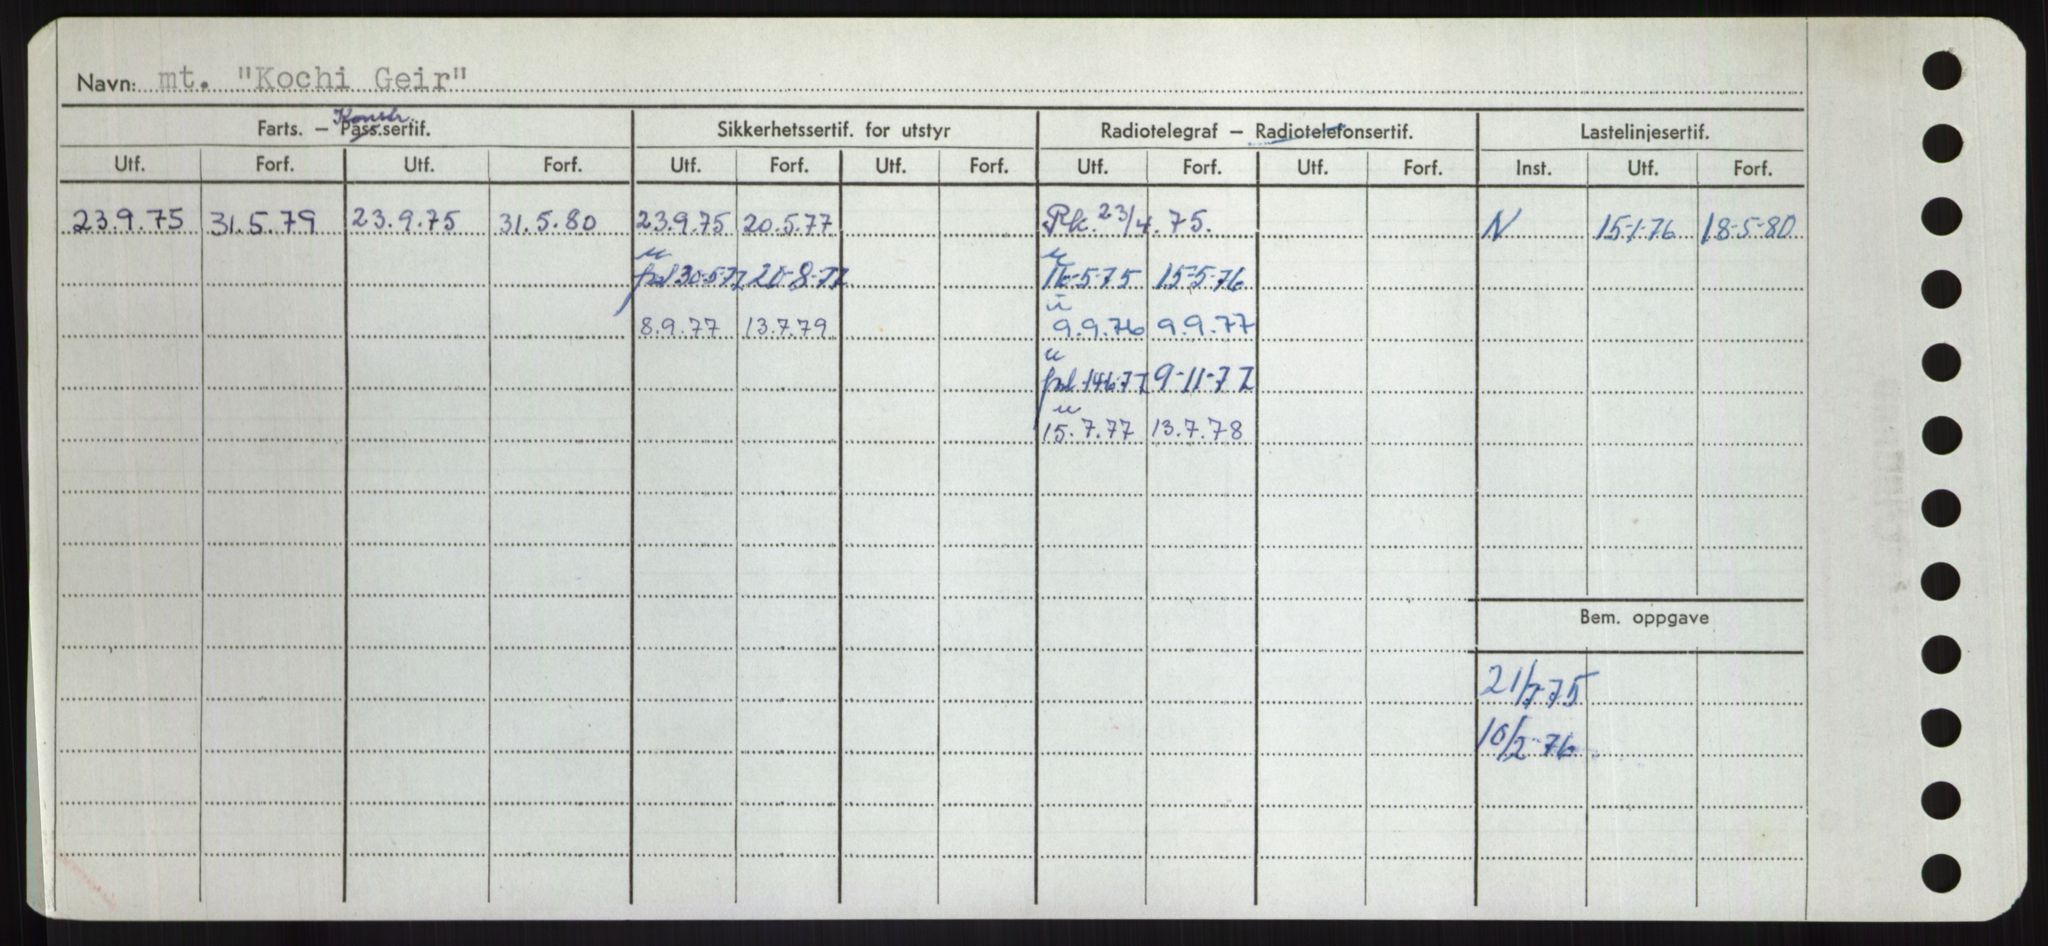 Navn: mt. "Kochi Geir"
Farts. – Pass.sertif. Konstr. Sikkerhetssertif. for utstyr Radiotelegraf – Radiotelefonsertif. Lastelinjesertif.
Utf. Forf. Utf. Forf. Utf. Forf. Utf. Forf. Utf. Forf. Utf. Forf. Inst. Utf. Forf.
23.9.75 31.5.79 23.9.75 31.5.80 23.9.75 20.5.77 Pk. 23/4.75. N 15-1-76 18-5-80
u u
30-5-77 20-8-77 16-5-75 15-5-76
u
8.9.77 13.7.79 9.9.76 9.9.77
u
14-6-77 9-11-77
u
15.7.77 13.7.78
Bem. oppgave
21/7-75
10/2-76